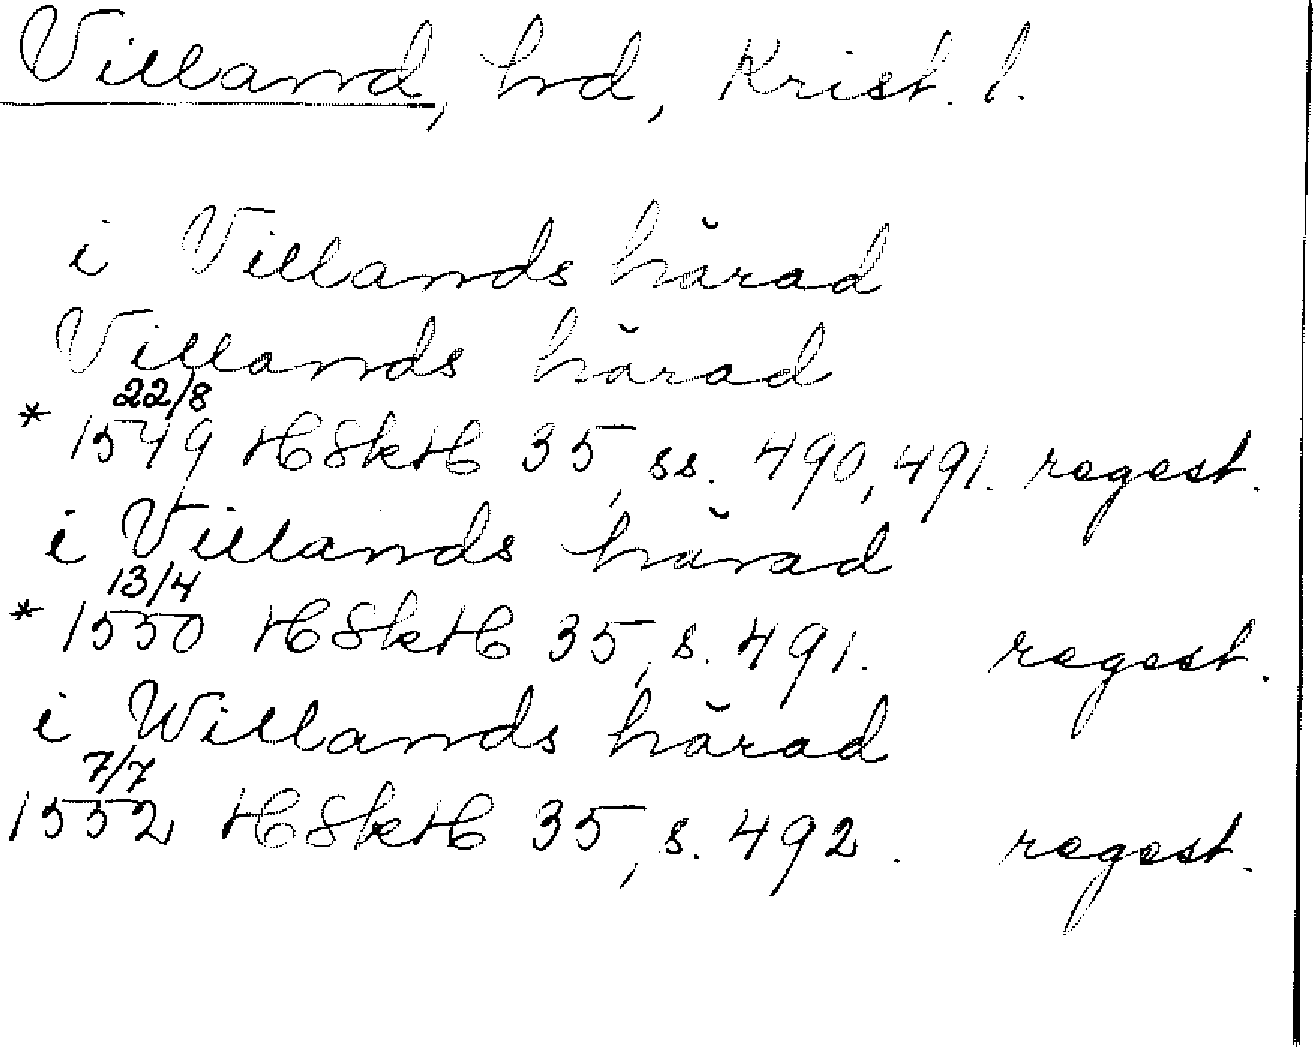 Villand, hd, Krist. l.
i Villands härad
Villands härad
22/8
* 1549 HSkH 35, ss. 490, 491. regest.
i Villands härad
13/4
* 1550 HSkH 35, s. 491. regest.
i Willands härad
7/7
1552 HSkH 35, s. 492. regest.